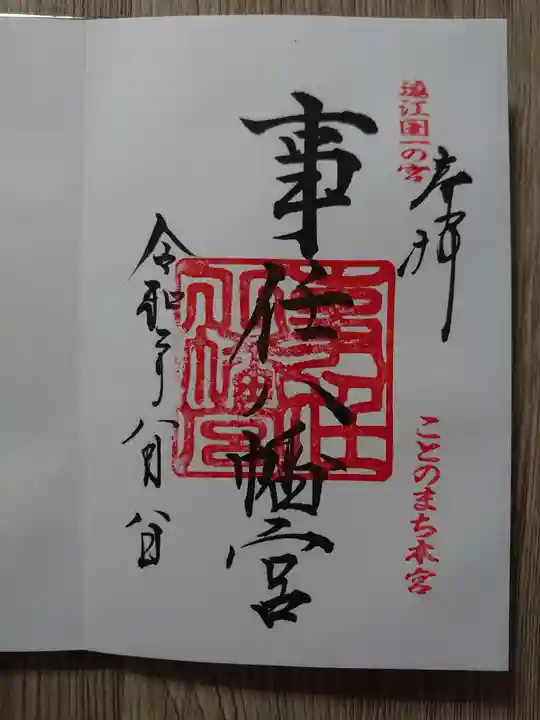 遠江国一の宮
奉拝
ことのまち本宮
事任八幡宮
令和
八月八日